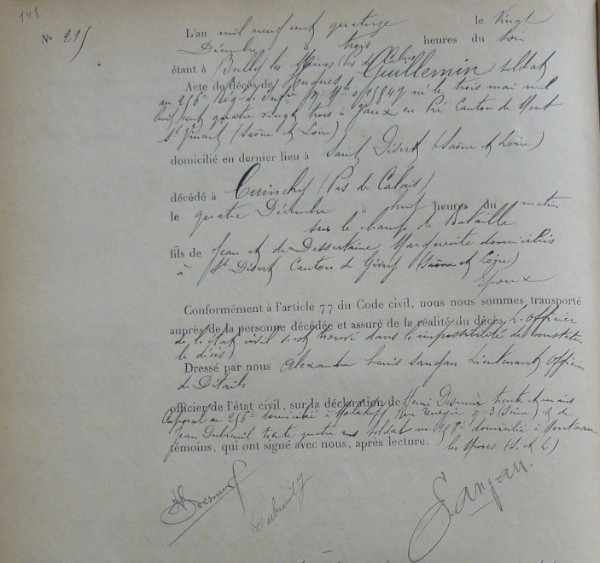 148
N° 215
L'an mil neuf cent quatorze le vingt
Décembre à trois heures du soir
étant à Bully les Mines (Pas de Calais)
Acte de décès de Hugues, Guillemin soldat
au 256e Rég. d'Infie né le trois mai mil
huit cent quatre vingt trois à Joux en Pré Canton de Mont
St Vincent (Saône et Loire)
domicilié en dernier lieu à Saint Désert (Saône et Loire)
décédé à Cuinchy (Pas de Calais)
le quatre Décembre à heures du matin
sur le champ de Bataille
fils de Jean et de Dessertaine, Marguerite domiciliés
à St Désert Canton de Givry (Saône et Loire)
Epoux
Conformément à l'article 77 du Code civil, nous nous sommes transporté
auprès de la personne décédée et assuré de la réalité du décès, L'officier
de l'état civil s'est trouvé dans l'impossibilité de constater
le décès
Dressé par nous Alexandre Louis Sanjan Lieutenant Officier
de Détails
officier de l'état civil, sur la déclaration de Henri Desnuis trente et un ans
Caporal au 256e domicilié à Malakoff Rue 3 (Seine) & de
Jean Dubreuil trente quatre ans soldat au 256e domicilié à Montceau
témoins, qui ont signé avec nous, après lecture. les Mines (S. & L)
Dubreuil
Sanjan